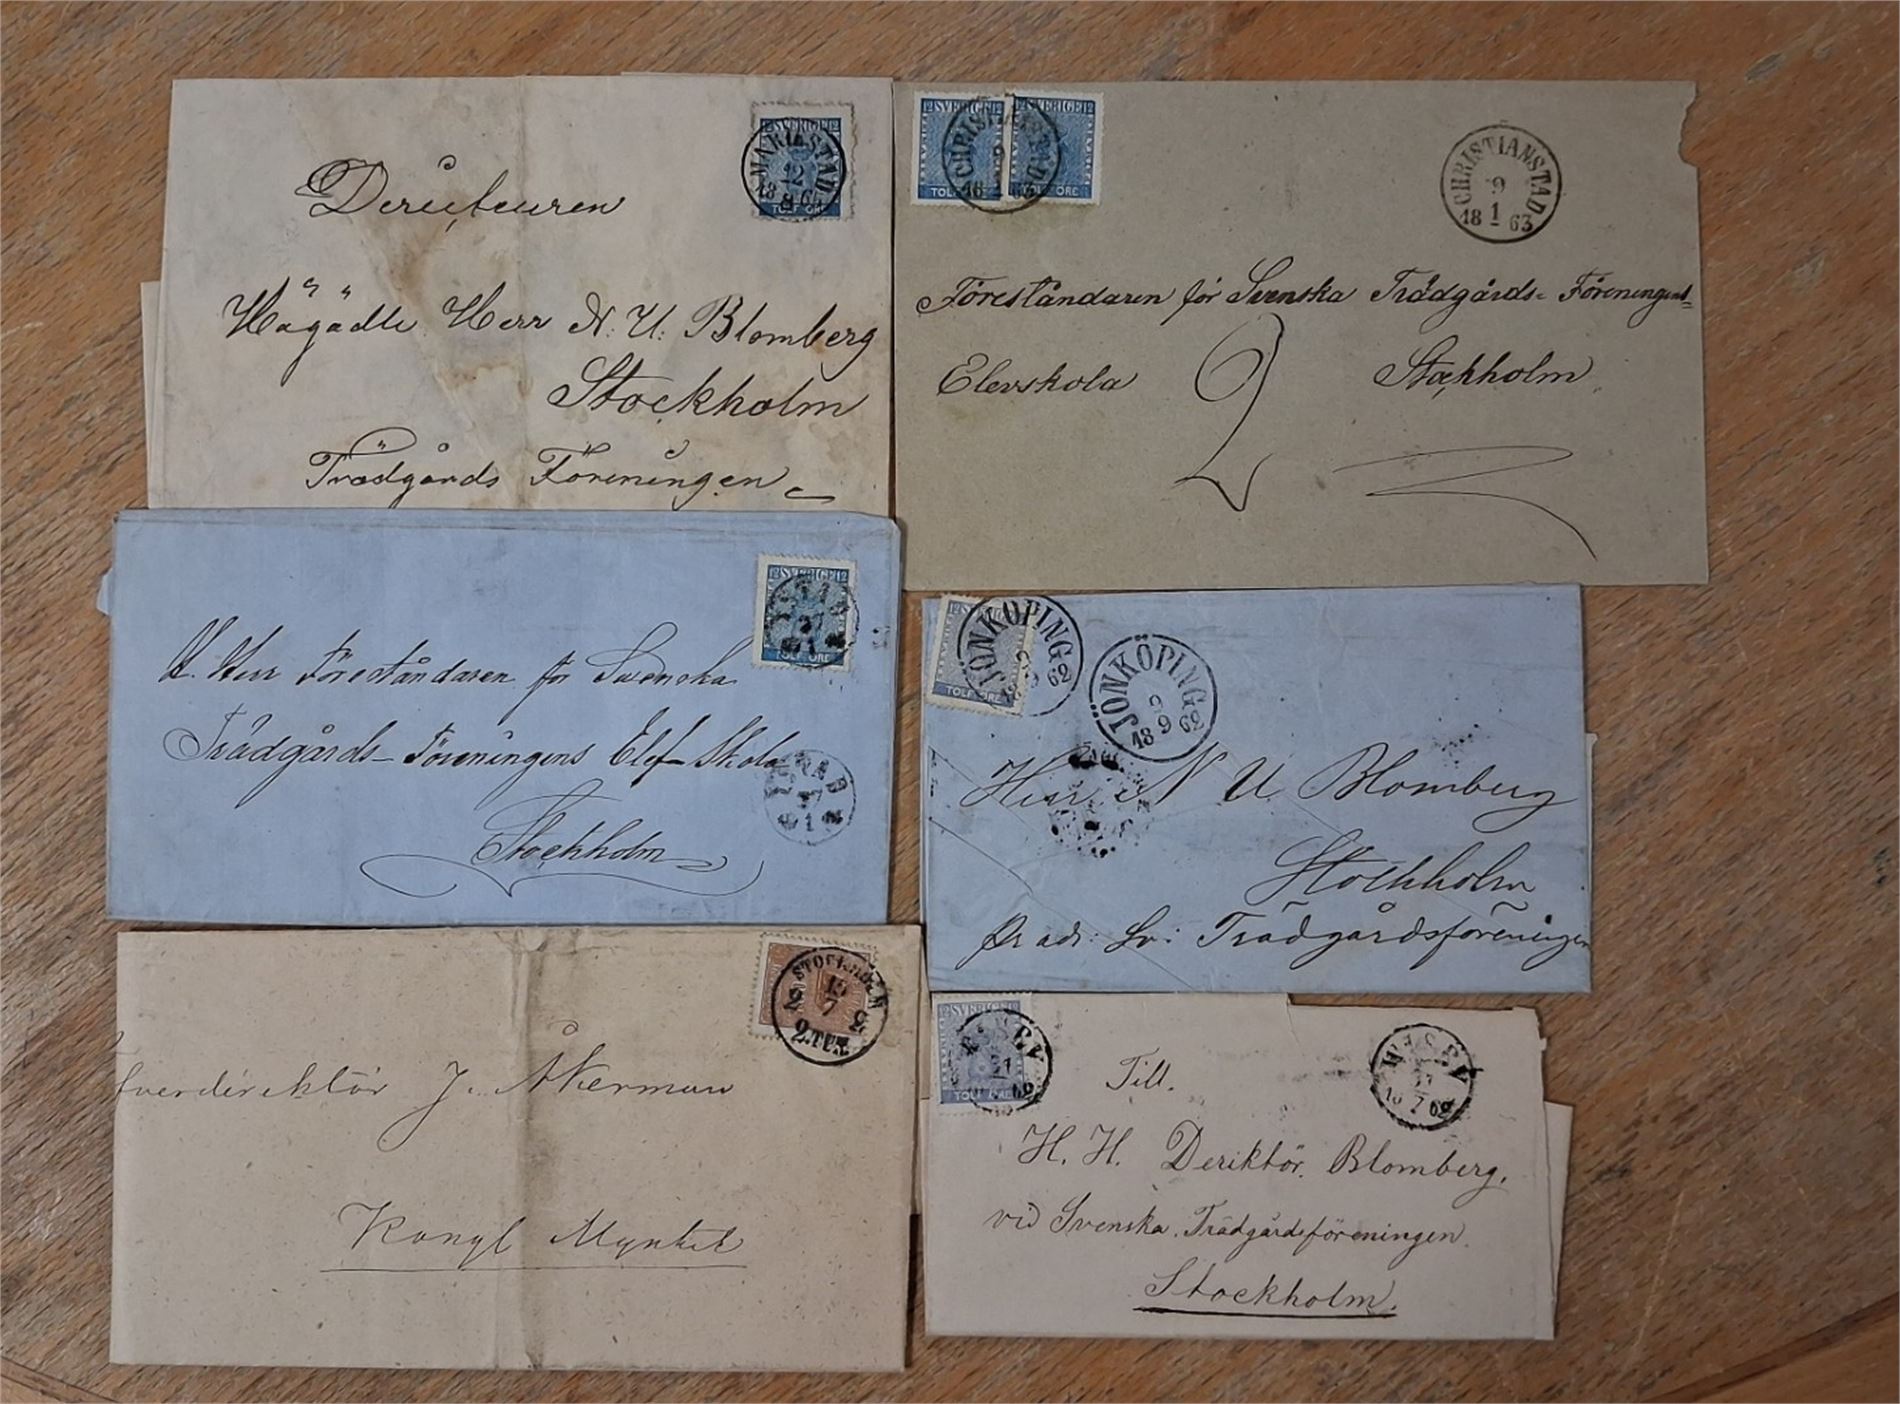 12 SVERIGE 12
MARIESTAD
12
8
TOLF ÖRE
Herr N. U. Blomberg
Stockholm
Trädgårds Föreningen
12 SVERIGE 12
12 SVERIGE 12
CHRISTIANSTAD
9
18 1 63
TOLF ÖRE
TOLF ÖRE
CHRISTIANSTAD
9
18 1 63
Föreståndaren för Svenska Trädgårds-Föreningens
Elevskola
2
Stockholm
12 SVERIGE 12
27
1
TOLF ÖRE
H. Herr Föreståndaren för Svenska
Trädgårds-Föreningens Elef-Skola
Stockholm
27
1
JÖNKÖPING
9
18 9 62
TOLF ÖRE
JÖNKÖPING
9
18 9 62
Herr N U Blomberg
Stockholm
pr adr: Sv: Trädgårdsföreningen
STOCKHOLM
19
7
2 3
2.TUR
J. Åkerman
Kongl Myntet
12 SVERIGE 12
TOLF ÖRE
7 62
Till.
H. H. Deriktör. Blomberg.
vid Svenska Trädgårdsföreningen.
Stockholm.